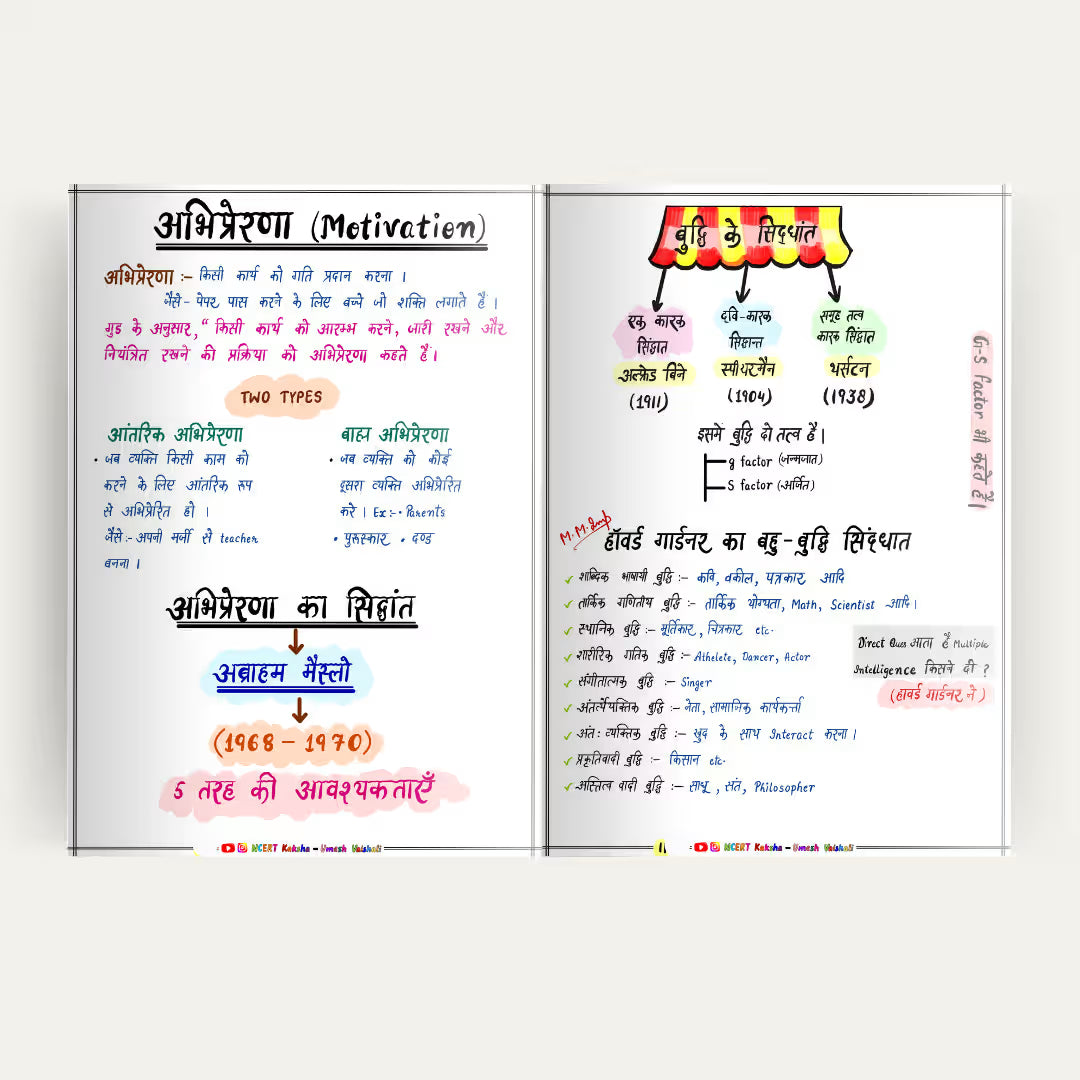 अभिप्रेरणा (Motivation)
अभिप्रेरणा :- किसी कार्य को गति प्रदान करना ।
जैसे - पेपर पास करने के लिए बच्चे जो शक्ति लगाते है ।
गुड के अनुसार, “ किसी कार्य को आरम्भ करने, जारी रखने और
नियंत्रित रखने की प्रक्रिया को अभिप्रेरणा कहते है ।
TWO TYPES
आंतरिक अभिप्रेरणा
• जब व्यक्ति किसी काम को
करने के लिए आंतरिक रूप
से अभिप्रेरित हो ।
जैसे :- अपनी मर्जी से teacher
बनना ।
बाह्य अभिप्रेरणा
• जब व्यक्ति को कोई
दूसरा व्यक्ति अभिप्रेरित
करे । Ex :- • Parents
• पुरूस्कार • दण्ड
अभिप्रेरणा का सिद्वांत
अब्राहम मैस्लो
(1968 - 1970)
5 तरह की आवश्यकताएँ
NCERT Kaksha - Umesh Vaishali
बुद्धि के सिद्धांत
एक कारक
सिंद्वात
अल्फ्रेड बिने
(1911)
द्वि-कारक
सिद्वान्त
स्पीयरमैन
(1904)
समूह तत्व
कारक सिंद्वात
थर्सटन
(1938)
इसमें बुद्वि दो तत्व है ।
g factor (जन्मजात)
S factor (अर्जित)
G-S factor भी कहते है ।
M.M. Imp
हॉवर्ड गार्डनर का बहु - बुद्वि सिंद्धात
✓ शाब्दिक भाषायी बुद्वि :- कवि, वकील, पत्रकार आदि
✓ तार्किक गणितीय बुद्वि :- तार्किक योग्यता, Math, Scientist आदि ।
✓ स्थानिक बुद्वि :- मूर्तिकार, चित्रकार etc.
✓ शारीरिक गतिक बुद्वि :- Athelete, Dancer, Actor
✓ संगीतात्मक बुद्वि :- Singer
✓ अंतर्वैयक्तिक बुद्वि :- नेता, सामाजिक कार्यकर्त्ता
✓ अंत: व्यक्तिक बुद्वि :- खुद के साथ Interact करना ।
✓ प्रकृतिवादी बुद्वि :- किसान etc.
✓ अस्तित्व वादी बुद्वि :- साधू, संत, Philosopher
Direct Ques आता है Multiple
Intelligence किसने दी ?
(हावर्ड गार्डनर ने)
11
NCERT Kaksha - Umesh Vaishali